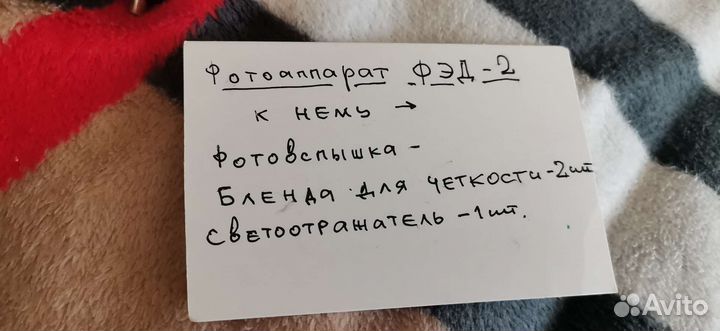 Фотоаппарат ФЭД-2
к нему →
Фотовспышка -
Бленда для четкости-2шт
Светоотражатель -1шт.
Avito